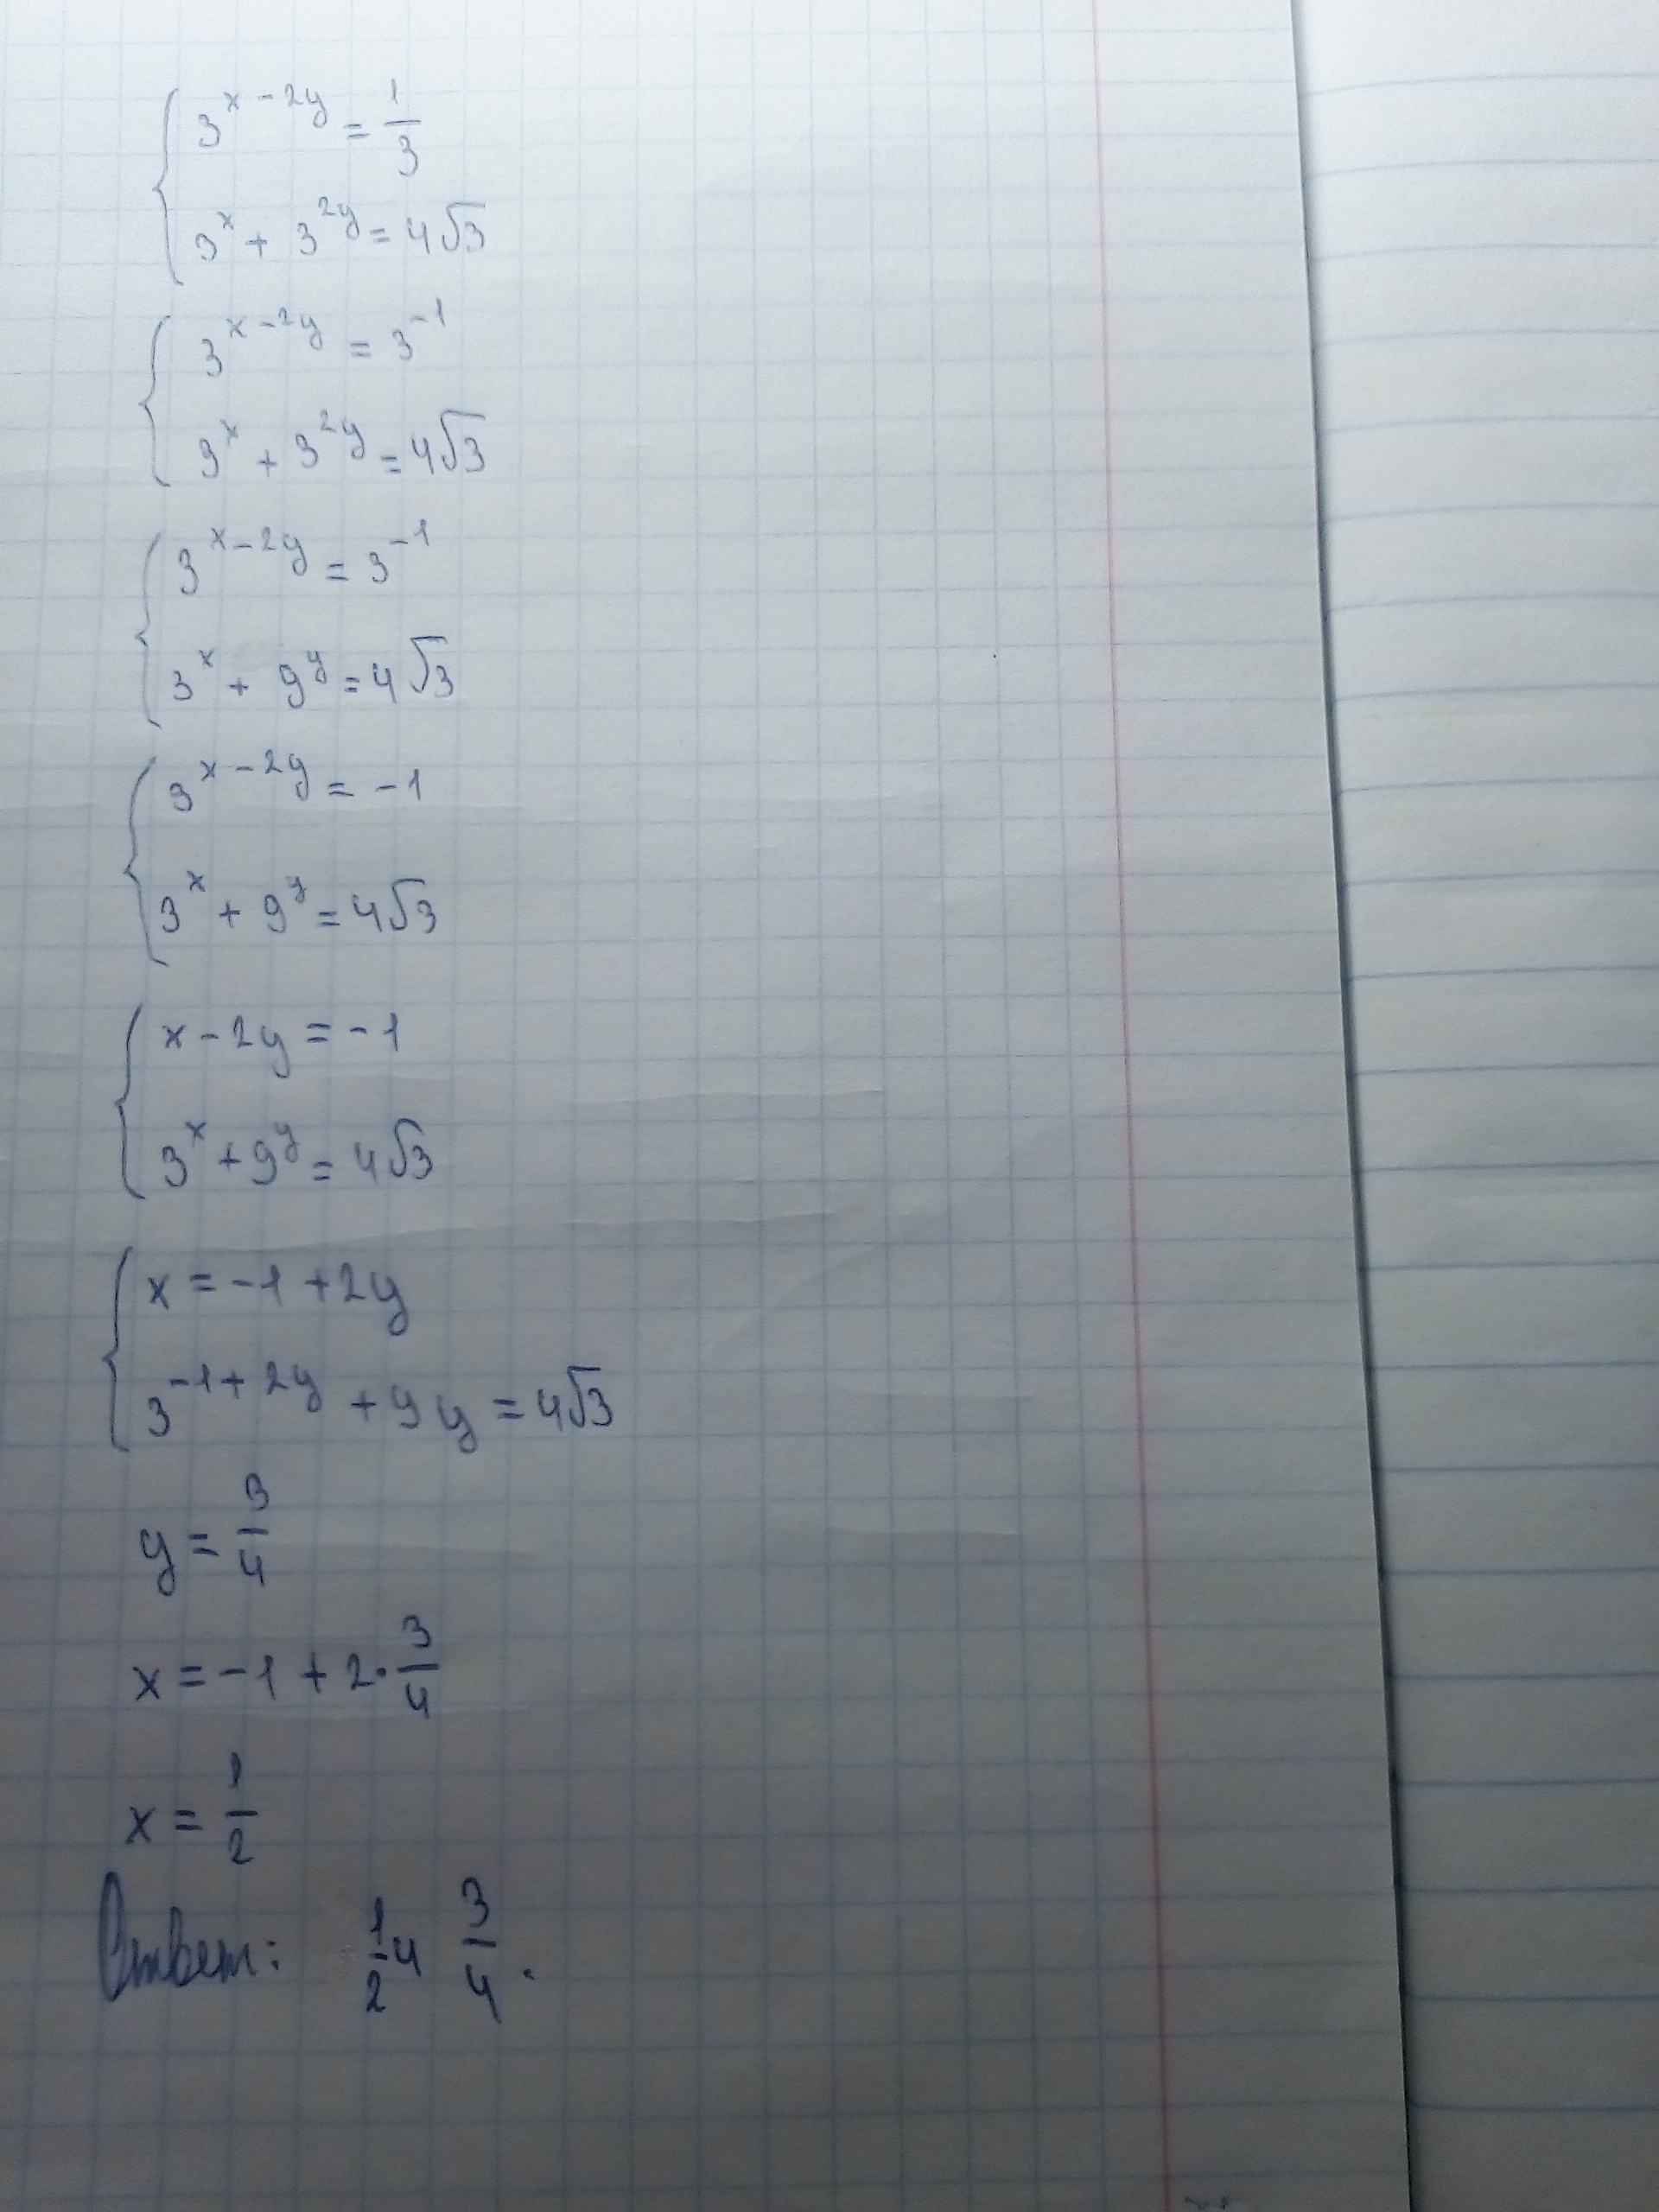 3^{x-2y} = 1/3
3^x + 3^{2y} = 4√3
3^{x-2y} = 3^{-1}
3^x + 3^{2y} = 4√3
3^{x-2y} = 3^{-1}
3^x + 9^y = 4√3
3^{x-2y} = -1
3^x + 9^y = 4√3
x - 2y = -1
3^x + 9^y = 4√3
x = -1 + 2y
3^{-1+2y} + 9y = 4√3
y = 3/4
x = -1 + 2·3/4
x = 1/2
Ответ: 1/2 и 3/4.